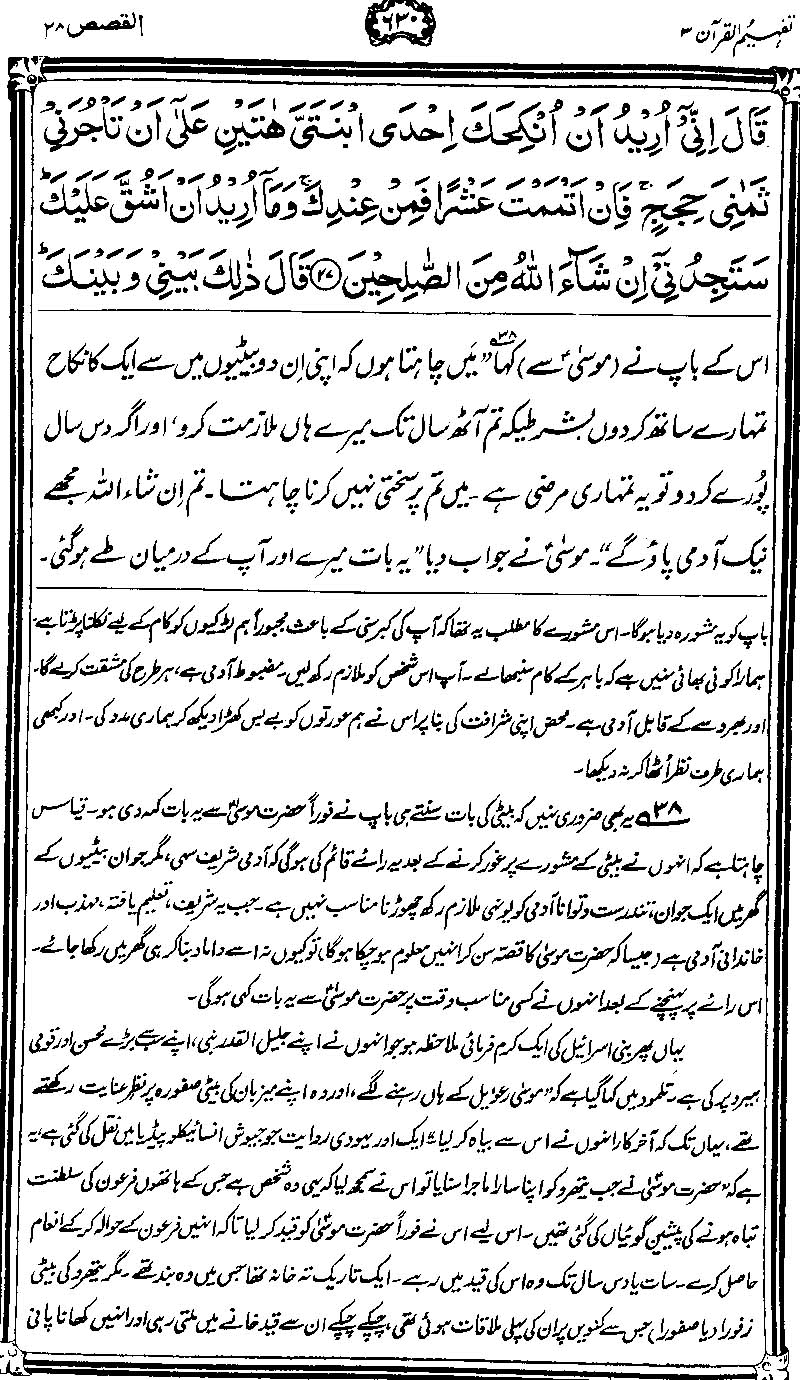 تفہیم القرآن ۳
۶۳۰
القصص ۲۸
قَالَ اِنِّیْۤ اُرِیْدُ اَنْ اُنْکِحَكَ اِحْدَی ابْنَتَیَّ هٰتَیْنِ عَلٰۤی اَنْ تَاْجُرَنِیْ
ثَمٰنِیَ حِجَجٍ ۚ فَاِنْ اَتْمَمْتَ عَشْرًا فَمِنْ عِنْدِكَ ۚ وَمَاۤ اُرِیْدُ اَنْ اَشُقَّ عَلَیْكَ ؕ
سَتَجِدُنِیْۤ اِنْ شَآءَ اللّٰهُ مِنَ الصّٰلِحِیْنَ ﴿۲۷﴾ قَالَ ذٰلِكَ بَیْنِیْ وَ بَیْنَكَ ؕ
اس کے باپ نے (موسٰیؑ سے) کہا۳۸ ”میں چاہتا ہوں کہ اپنی اِن دو بیٹیوں میں سے ایک کا نکاح
تمہارے ساتھ کر دوں بشرطیکہ تم آٹھ سال تک میرے ہاں ملازمت کرو، اور اگر دس سال
پُورے کر دو تو یہ تمہاری مرضی ہے۔ میں تم پر سختی نہیں کرنا چاہتا۔ تم اِن شاء اللہ مجھے
نیک آدمی پاؤ گے“۔ موسٰیؑ نے جواب دیا ”یہ بات میرے اور آپ کے درمیان طے ہو گئی۔
باپ کو یہ مشورہ دیا ہوگا۔ اس مشورے کا مطلب یہ تھا کہ آپ کی کبر سنی کے باعث مجبوراً ہم لڑکیوں کو کام کے لیے نکلنا پڑتا ہے۔
ہمارا کوئی بھائی نہیں ہے کہ باہر کے کام سنبھالے۔ آپ اس شخص کو ملازم رکھ لیں۔ مضبوط آدمی ہے، ہر طرح کی مشقت کرے گا۔
اور بھروسے کے قابل آدمی ہے۔ محض اپنی شرافت کی بنا پر اس نے ہم عورتوں کو بے بس کھڑا دیکھ کر ہماری مدد کی۔ اور کبھی
ہماری طرف نظر اُٹھا کر نہ دیکھا۔
۳۸ یہ بھی ضروری نہیں کہ بیٹی کی بات سنتے ہی باپ نے فوراً حضرت موسٰیؑ سے یہ بات کہہ دی ہو۔ قیاس
چاہتا ہے کہ انہوں نے بیٹی کے مشورے پر غور کرنے کے بعد یہ رائے قائم کی ہوگی کہ آدمی شریف سہی، مگر جوان بیٹیوں کے
گھر میں ایک جوان، تندرست و توانا آدمی کو یونہی ملازم رکھ چھوڑنا مناسب نہیں ہے۔ جب یہ شریف، تعلیم یافتہ، مہذب اور
خاندانی آدمی ہے (جیسا کہ حضرت موسٰیؑ کا قصہ سن کر انہیں معلوم ہو چکا ہوگا) تو کیوں نہ اسے داماد بنا کر ہی گھر میں رکھا جائے۔
اس رائے پر پہنچنے کے بعد انہوں نے کسی مناسب وقت پر حضرت موسٰیؑ سے یہ بات کہی ہوگی۔
یہاں پھر بنی اسرائیل کی ایک کرم فرمائی ملاحظہ ہو جو انہوں نے اپنے جلیل القدر نبی، اپنے سب سے بڑے محسن اور قومی
ہیرو پر کی ہے۔ تلمود میں کہا گیا ہے کہ ”موسیٰ رعویل کے ہاں رہنے لگے، اور وہ اپنے میزبان کی بیٹی صفورہ پر نظر عنایت رکھتے
تھے، یہاں تک کہ آخر کار انہوں نے اس سے بیاہ کر لیا“۔ ایک اور یہودی روایت جو جیوش انسائیکلوپیڈیا میں نقل کی گئی ہے، یہ
ہے کہ ”حضرت موسٰیؑ نے جب یتھرو کو اپنا سارا ماجرا سنایا تو اس نے سمجھ لیا کہ یہی وہ شخص ہے جس کے ہاتھوں فرعون کی سلطنت
تباہ ہونے کی پیشین گوئیاں کی گئی تھیں۔ اس لیے اس نے فوراً حضرت موسٰیؑ کو قید کر لیا تاکہ انہیں فرعون کے حوالہ کر کے انعام
حاصل کرے۔ سات یا دس سال تک وہ اس کی قید میں رہے۔ ایک تاریک تہ خانہ تھا جس میں وہ بند تھے۔ مگر یتھرو کی بیٹی
زفورا (یا صفورا) جس سے کنویں پر ان کی پہلی ملاقات ہوئی تھی، چپکے چپکے ان سے قید خانے میں ملتی رہی اور انہیں کھانا پانی